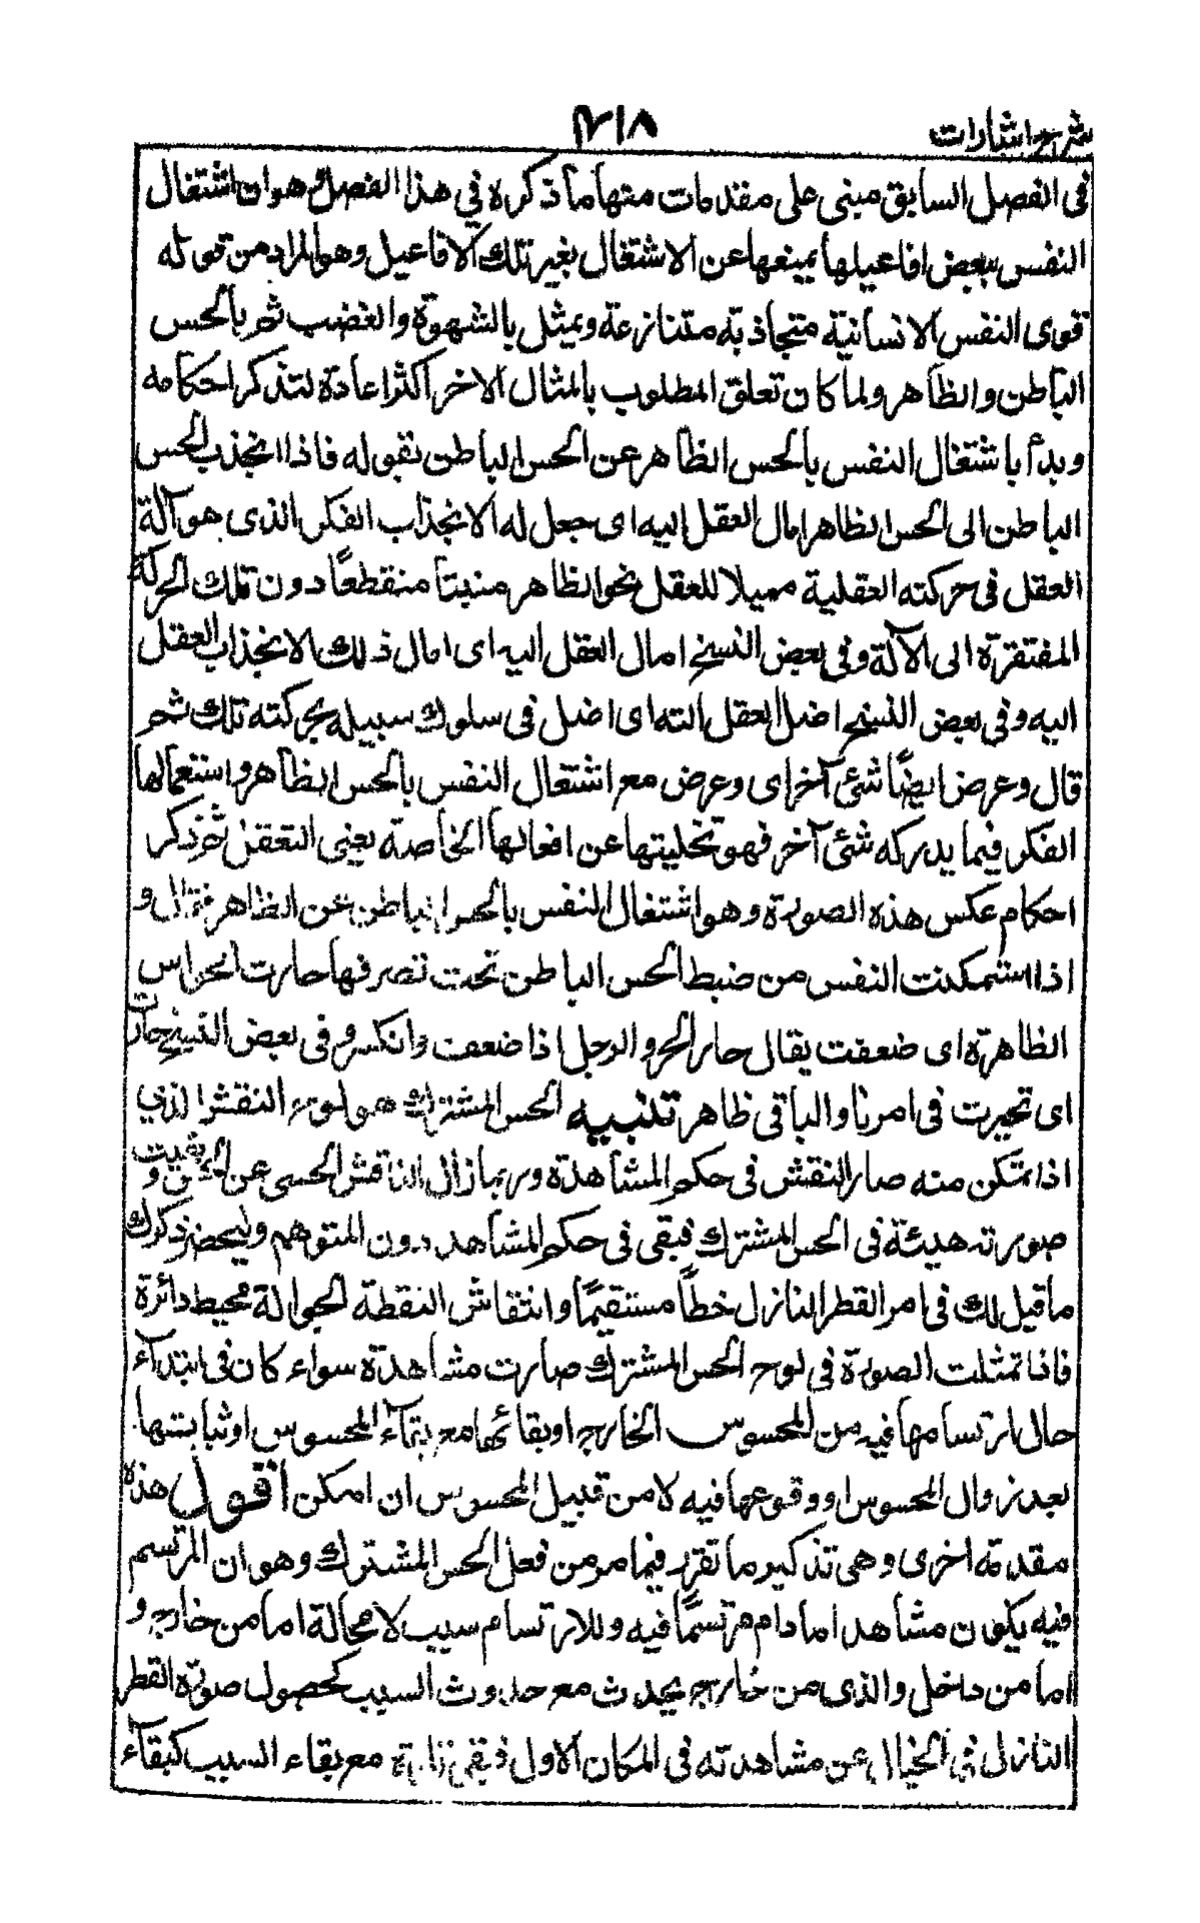 شرح اشارات
٢١٨
فى الفصل السابق مبنى على مقدمات منها ما ذكره في هذا الفصل وهو ان اشتغال
النفس ببعض افاعيلها يمنعها عن الاشتغال بغير تلك الافاعيل وهو المراد من قوله
قوى النفس الانسانية متجاذبة متنازعة ويمثل بالشهوة والغضب ثم بالحس
الباطن والظاهر ولما كان تعلق المطلوب بالمثال الاخر اكثر اعادة لتذكر احكامه
وبدأ باشتغال النفس بالحس الظاهر عن الحس الباطن بقوله فاذا انجذب الحس
الباطن الى الحس الظاهر امال العقل اليه اى جعل له الانجذاب الفكر الذى هو آلة
العقل فى حركته العقلية مميلا للعقل نحو الظاهر منبتا منقطعًا دون تلك الحركة
المفتقرة الى الآلة وفى بعض النسخ امال العقل اليه اى امال ذلك الانجذاب العقل
اليه وفي بعض النسخ اضل العقل آلته اى اضل فى سلوك سبيله بحركته تلك ثم
قال وعرض ايضًا شئ آخر اى وعرض مع اشتغال النفس بالحس الظاهر واستعمالها
الفكر فيما يدركه شئ آخر فهو تخليتها عن افعالها الخاصة يعنى التعقل ثم ذكر
احكام عكس هذه الصورة وهو اشتغال النفس بالحس الباطن عن الظاهر فقال و
اذا استمكنت النفس من ضبط الحس الباطن تحت تصرفها حارت الحواس
الظاهرة اى ضعفت يقال حار الحر والرجل اذا ضعفت وانكسر وفى بعض النسخ حارت
اى تحيرت فى امرنا والباقى ظاهر تنبيه الحس المشترك هو لوح النقش الذي
اذا تمكن منه صار النقش فى حكم المشاهدة وربما زال الناقش الحسى عن الحس وبقيت
صورته هيئة فى الحس المشترك فبقى فى حكم المشاهد دون المتوهم وليحضر ذكرك
ما قيل لك فى امر القطر النازل خطًا مستقيمًا وانتقاش النقطة الجوالة محيط دائرة
فاذا تمثلت الصورة فى لوح الحس المشترك صارت مشاهدة سواء كان فى ابتداء
حال ارتسامها فيه من المحسوس الخارج او بقائها مع بقاء المحسوس او ثباتها
بعد زوال المحسوس او وقوعها فيه لا من قبيل المحسوس ان امكن اقول هذه
مقدمة اخرى وهى تذكير ما تقرر فيما مر من فعل الحس المشترك وهو ان المرتسم
فيه يكون مشاهدا ما دام مرتسمًا فيه وللارتسام سبب لا محالة اما من خارج و
اما من داخل والذى من خارج يحدث مع حدوث السبب كحصول صورة القطر
النازل فى الخيال عن مشاهدته فى المكان الاول مع بقاء السبب كبقاء